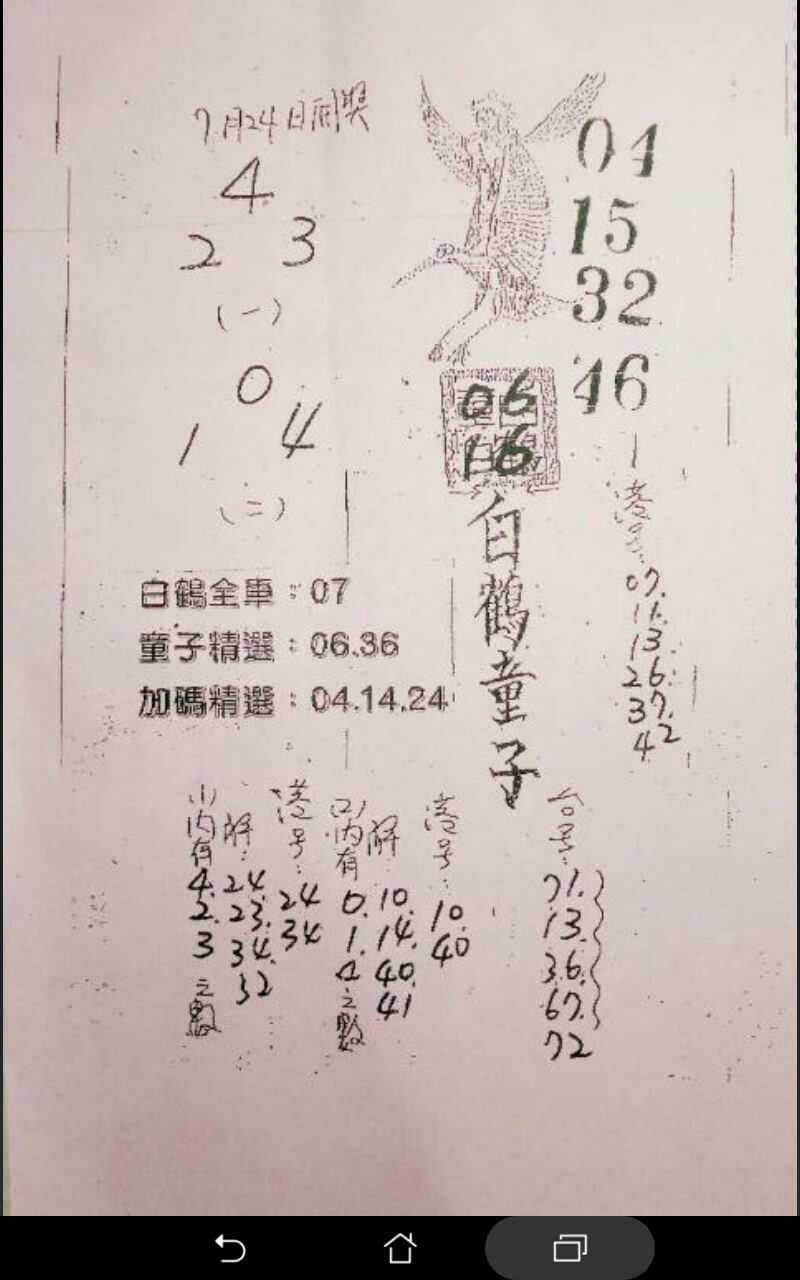 7月24日開獎
4
2 3
(一)
0
1 4
(二)
04
15
32
46
06
16
白鶴童子
港号:
07.
11.
13.
26.
37.
42
白鶴全車：07
童子精選：06.36
加碼精選：04.14.24
(1)內有
4.
2.
3
之數
解:
24.
23.
34.
32
港号:
24
34
(2)內有
0.
1.
4
之數
解:
10.
14.
40.
41
港号:
10.
40
台号:
71.
13.
36.
67.
72